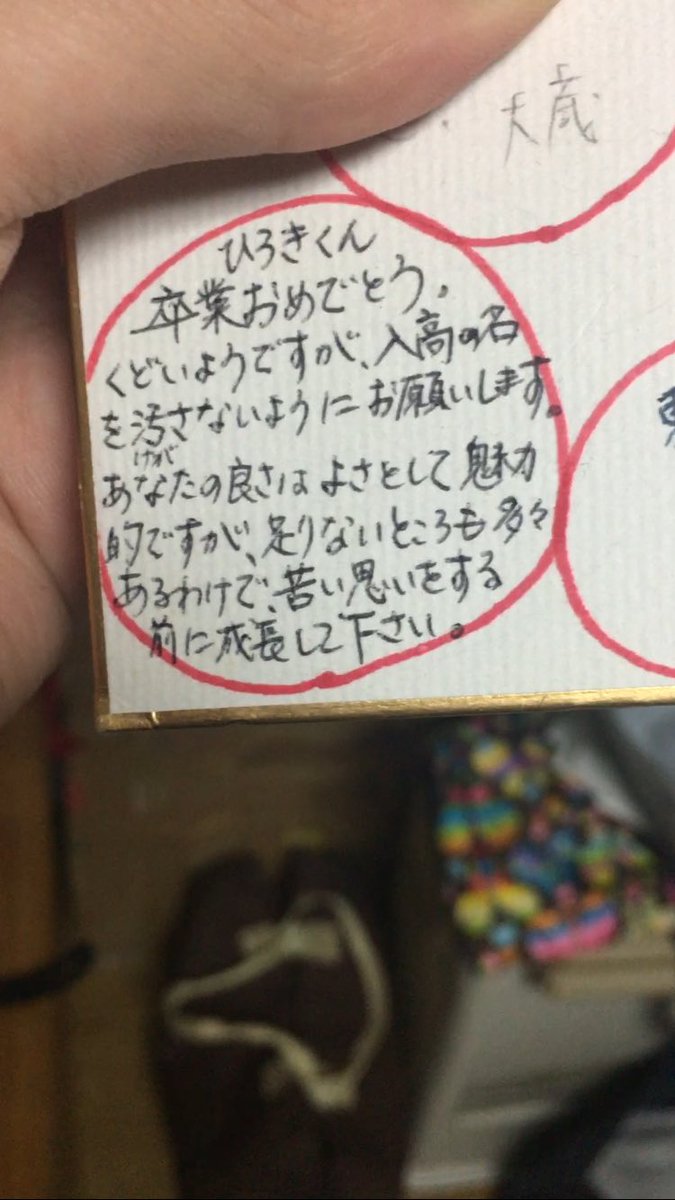 大蔵
ひろきくん
卒業おめでとう。
くどいようですが、入高の名
を汚さないようにお願いします。
けが
あなたの良さはよさとして魅力
的ですが、足りないところも多々
あるわけで、苦い思いをする
前に成長して下さい。